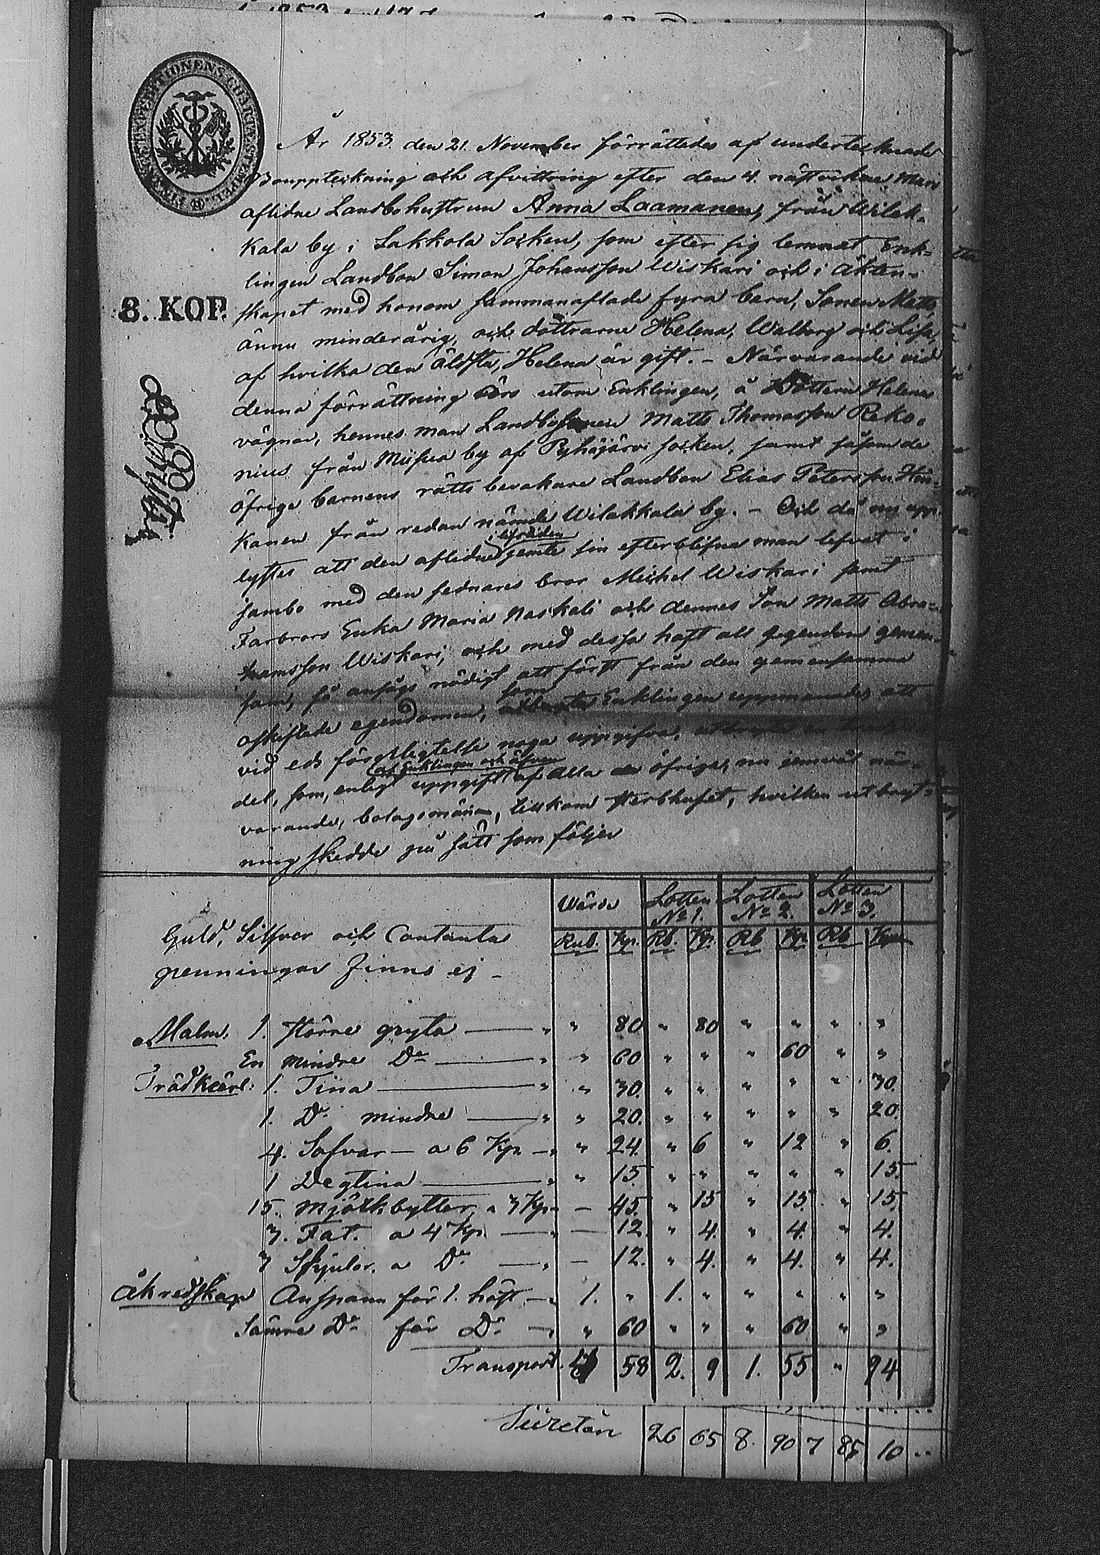 År 1853. den 21. November förrättades af undertecknade
Bouppteckning och afvittring efter den 4. nästvikne Mars
aflidne Landbohustrun Anna Laamanen, från Wilak-
kala by i Sakkola Socken, som efter sig lemnat Enk-
lingen Landbon Simon Johansson Wiskari och i ächten-
skapet med honom sammanaflade fyra barn, Sonen Matts,
ännu minderårig, och döttrarne Helena, Walborg och Lisa,
af hvilka den äldsta, Helena är gift. - Närvarande vid
denna förrättning äro utom Enklingen, å Dottern Helenas
vägnar, hennes man Landbosonen Matts Thomasson Reko-
nius från Miisua by af Pyhäjärvi Socken, samt såsom de
öfrige barnens rätts bevakare Landbon Elias Petersson
kanen från redan nämde Wilakkala by. - Och då nu upp-
lystes att den aflidne i lifstiden jemte sin efterblifna man lefvat i
sambo med den sednares bror Michel Wiskari samt
Farbrors Enka Maria Naskali och dennes Son Matts Abra-
hamsson Wiskari, och med dessa haft all egendom gemen-
sam, så ansågs nödigt att först från den gemensamma
oskiftade egendomen, som Enklingen uppmanades att
vid eds förpligtelse noga uppgifva, utbryta
del, som, enligt af Enklingen och äfven uppgift af alla de öfrige, nu jemväl när-
varande, bolagsmännen, tillkom Sterbhuset, hvilken utbryt-
ning skedde på sätt som följer
8. KOP.
Wärde Lotten No 1. Lotten No 2. Lotten No 3.
Rub. Kp. Rb. Kp. Rb Kp. Rb Kp.
Guld, Silfver och Contanta
penningar finns ej -
Malm. 1. större gryta — " " 80. " 80 " " " "
En mindre Do — " " 60 " " " 60 " "
Trädkäril: 1. Tina — " " 30. " " " " " 30.
1. Do mindre — " " 20. " " " " " 20.
4. Såfvar — a 6 Kp — " " 24. " 6 " 12 " 6.
1 Degtina — " " 15. " " " " " 15.
15. Mjölkbyttor a 3 Kp. — 45. " 15 " 15. " 15.
3. Fat. a 4 Kp. — — 12. " 4. " 4. " 4.
3 Skyulor. a Do — — 12. " 4. " 4. " 4.
Åkredskap Anspann för 1. häst — " 1. " 1. " " " " "
Sämre Do för Do — " " 60 " " " 60 " "
Transport. 4 58 2. 9 1. 55 " 94
Siiretän 26 65 8. 90 7 85 10 ..